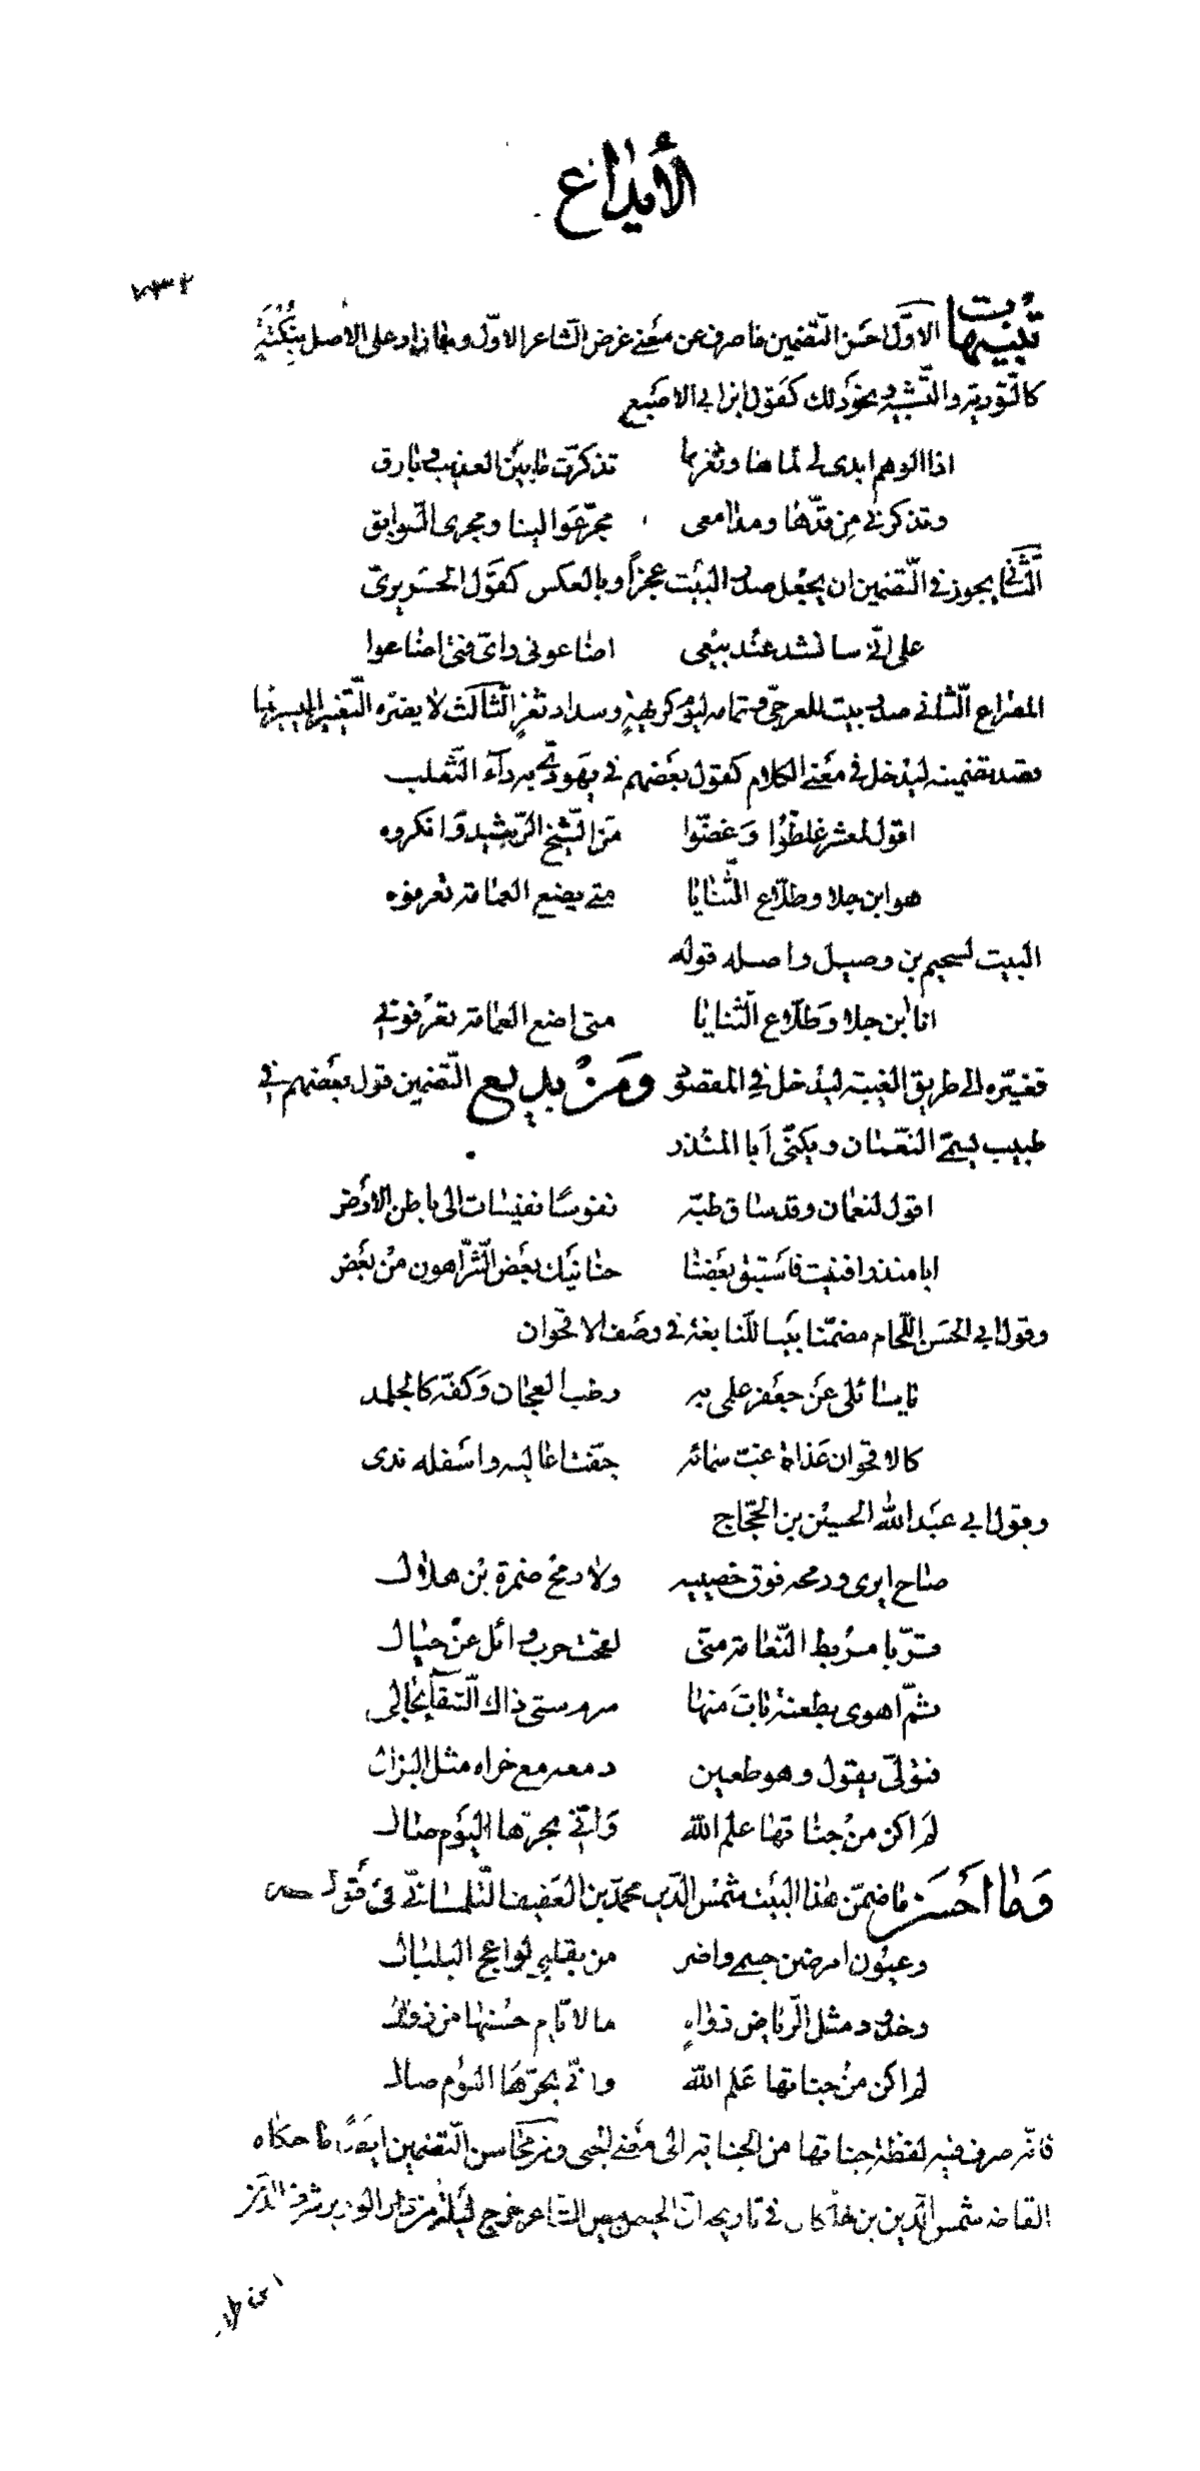 الأيداع
٧٣٢
تنبيهات الاوّل احسن التّضمين ما صرف عن معنى غرض الشّاعر الاوّل وما زاد على الاصل بنكتة
كالتّورية والتّشبيه ونحو ذلك كقول ابن ابى الاصبع
اذا الوهم ابدى لى لماها وثغرها تذكرت ما بين العذيب وبارق
وتذكرنى من قدّها ومدامعى مجرّ عوالينا ومجرى السّوابق
الثّانى يجوز فى التّضمين ان يجعل صدر البيت عجزاً وبالعكس كقول الحريرىّ
على انّى سانشد عند بيعى اضاعونى واىّ فتى اضاعوا
المصراع الثّانى صدر بيت للعرجىّ وتمامه ليوم كريهة وسداد ثغر الثالث لا يضرّه التّغيير اليسير لما
قصد تضمينه ليدخل فى معنى الكلام كقول بعضهم فى يهودىّ به داء الثّعلب
اقول لمعشر غلطوا وغضّوا من الشّيخ الرّشيد وانكروه
هو ابن جلا وطلّاع الثّنايا متى يضع العمامة تعرفوه
البيت لسحيم بن وصيل واصله قوله
انا ابن جلا وطلّاع الثّنايا متى اضع العمامة تعرفونى
فغيّره الى طريق الغيبة ليدخل فى المقصود ومن بديع التّضمين قول بعضهم فى
طبيب يسمّى النّعمان ويكنّى أبا المنذر
اقول لنعمان وقد ساق طبّه نفوسًا نفيسات الى باطن الارض
ابا منذر افنيت فاستبق بعضنا حنانيك بعض الشّرّ اهون من بعض
وقول ابى الحسن اللّحام مضمّنا بيت النّابغة فى وصف الاقحوان
يا سائلى عن جعفر علمى به رطب العجان وكفّه كالجلمد
كالاقحوان غداة غبّ سمائه جفّت اعاليه واسفله ندى
وقول ابى عبد الله الحسين بن الحجّاج
صاح ايرى ورمحه فوق خصييه ولا رمح ضمرة بن هلال
قرّبا مربط النّعامة منّى لقحت حرب وائل عن حيال
ثمّ اهوى بطعنة بات منها
فتولّى يقول وهو طعين دمعه مع خراه مثل البزال
لم اكن من جناتها علم الله وانّى بحرّها اليوم صال
وما احسن ما ضمّن هذا البيت شمس الدّين محمّد بن العفيف التّلمسانىّ فى قوله
وعيون امرضن جسمى واضرمن بقلبى لواعج البلبال
وخدود مثل الرّياض زواهٍ ما لايّام حسنها من زوال
لم اكن من جناتها علم الله وانّى بحرّها اليوم صال
فانّه صرف فيه لفظة جناتها من الجناية الى معنى الجنى ومن محاسن التّضمين ايضًا ما حكاه
القاضى شمس الدّين بن خلّكان فى تاريخه انّ الحيص بيص الشّاعر خرج ليلة من دار الوزير شرف الدّين